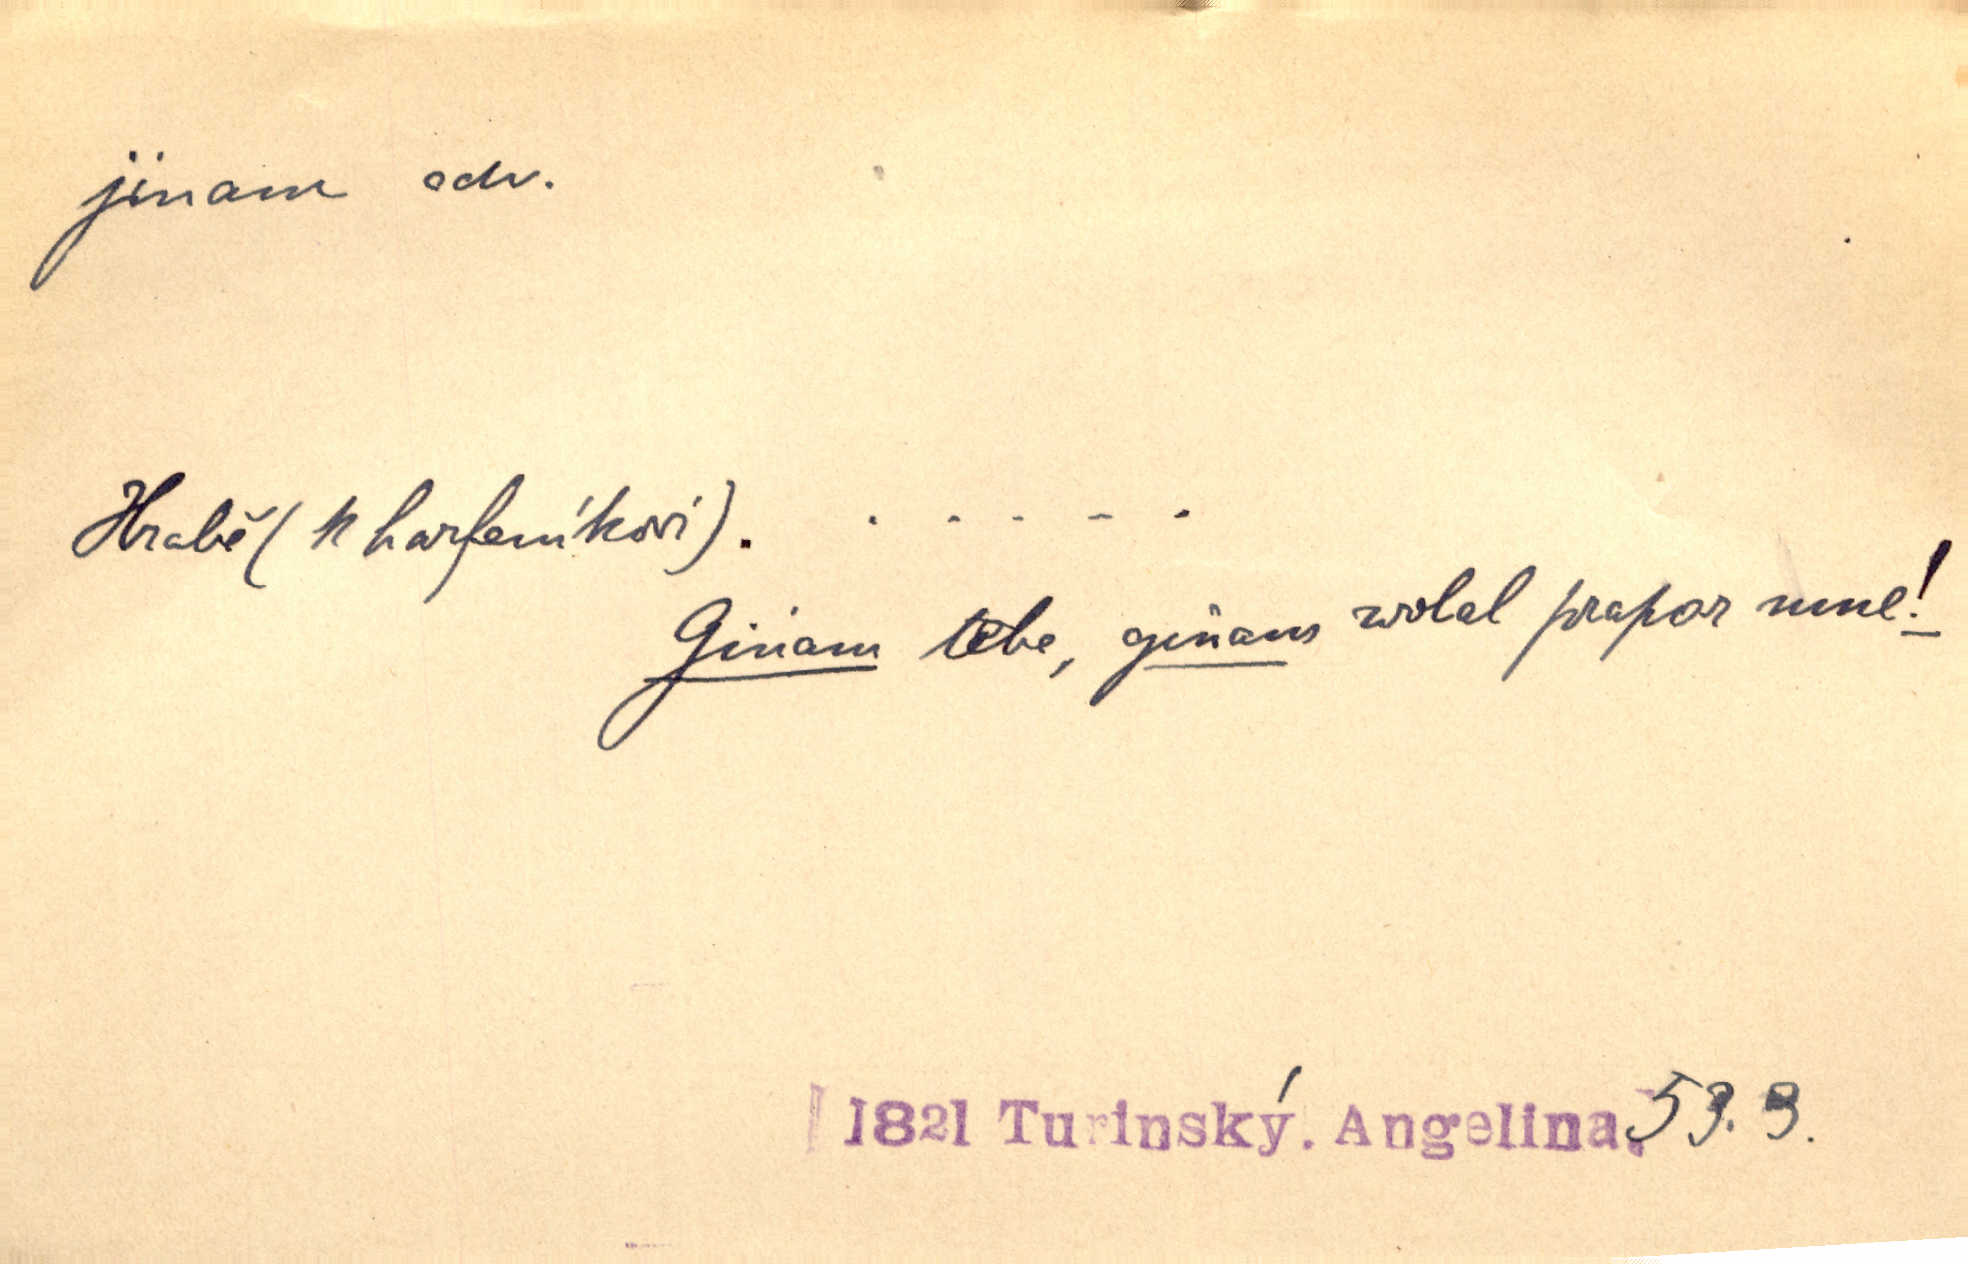 jinam adv.
Hrabě (k harfeníkovi). . - - - .
Ginam tebe, ginam wolal prapor mne!
1821 Turinský. Angelina. 53. 9.